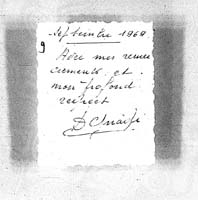 Septembre 1969
9
Avec mes remer
ciements et
mon profond
respect